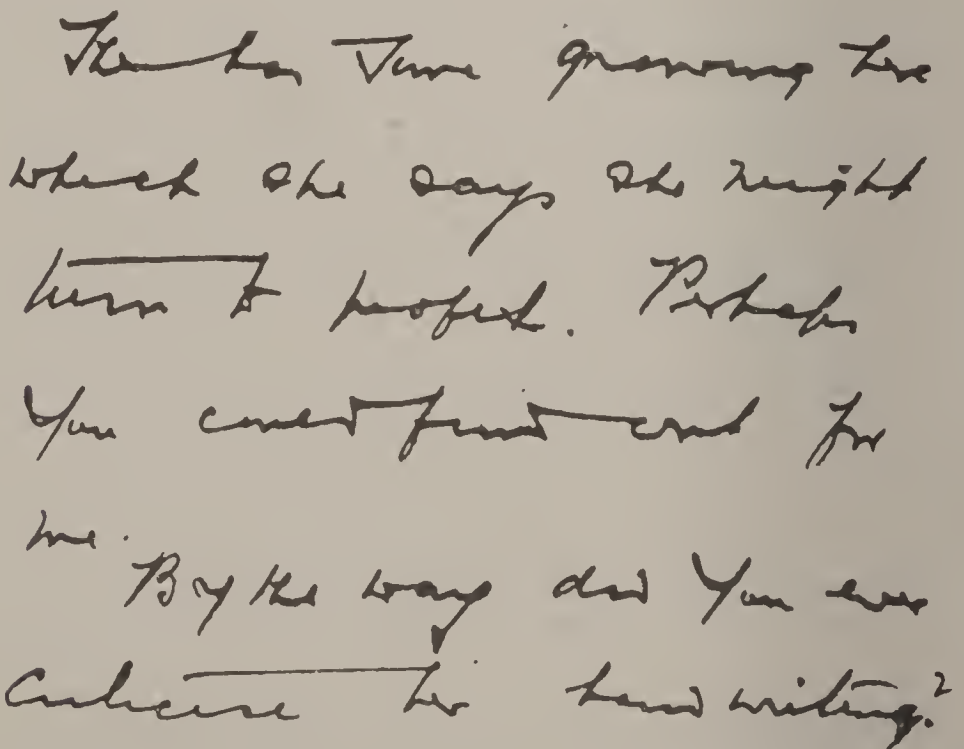 has Time growing here
which she says she might
turn to profit. Perhaps
you could find out for
me.
By the way did you ever
Criticise her handwriting?